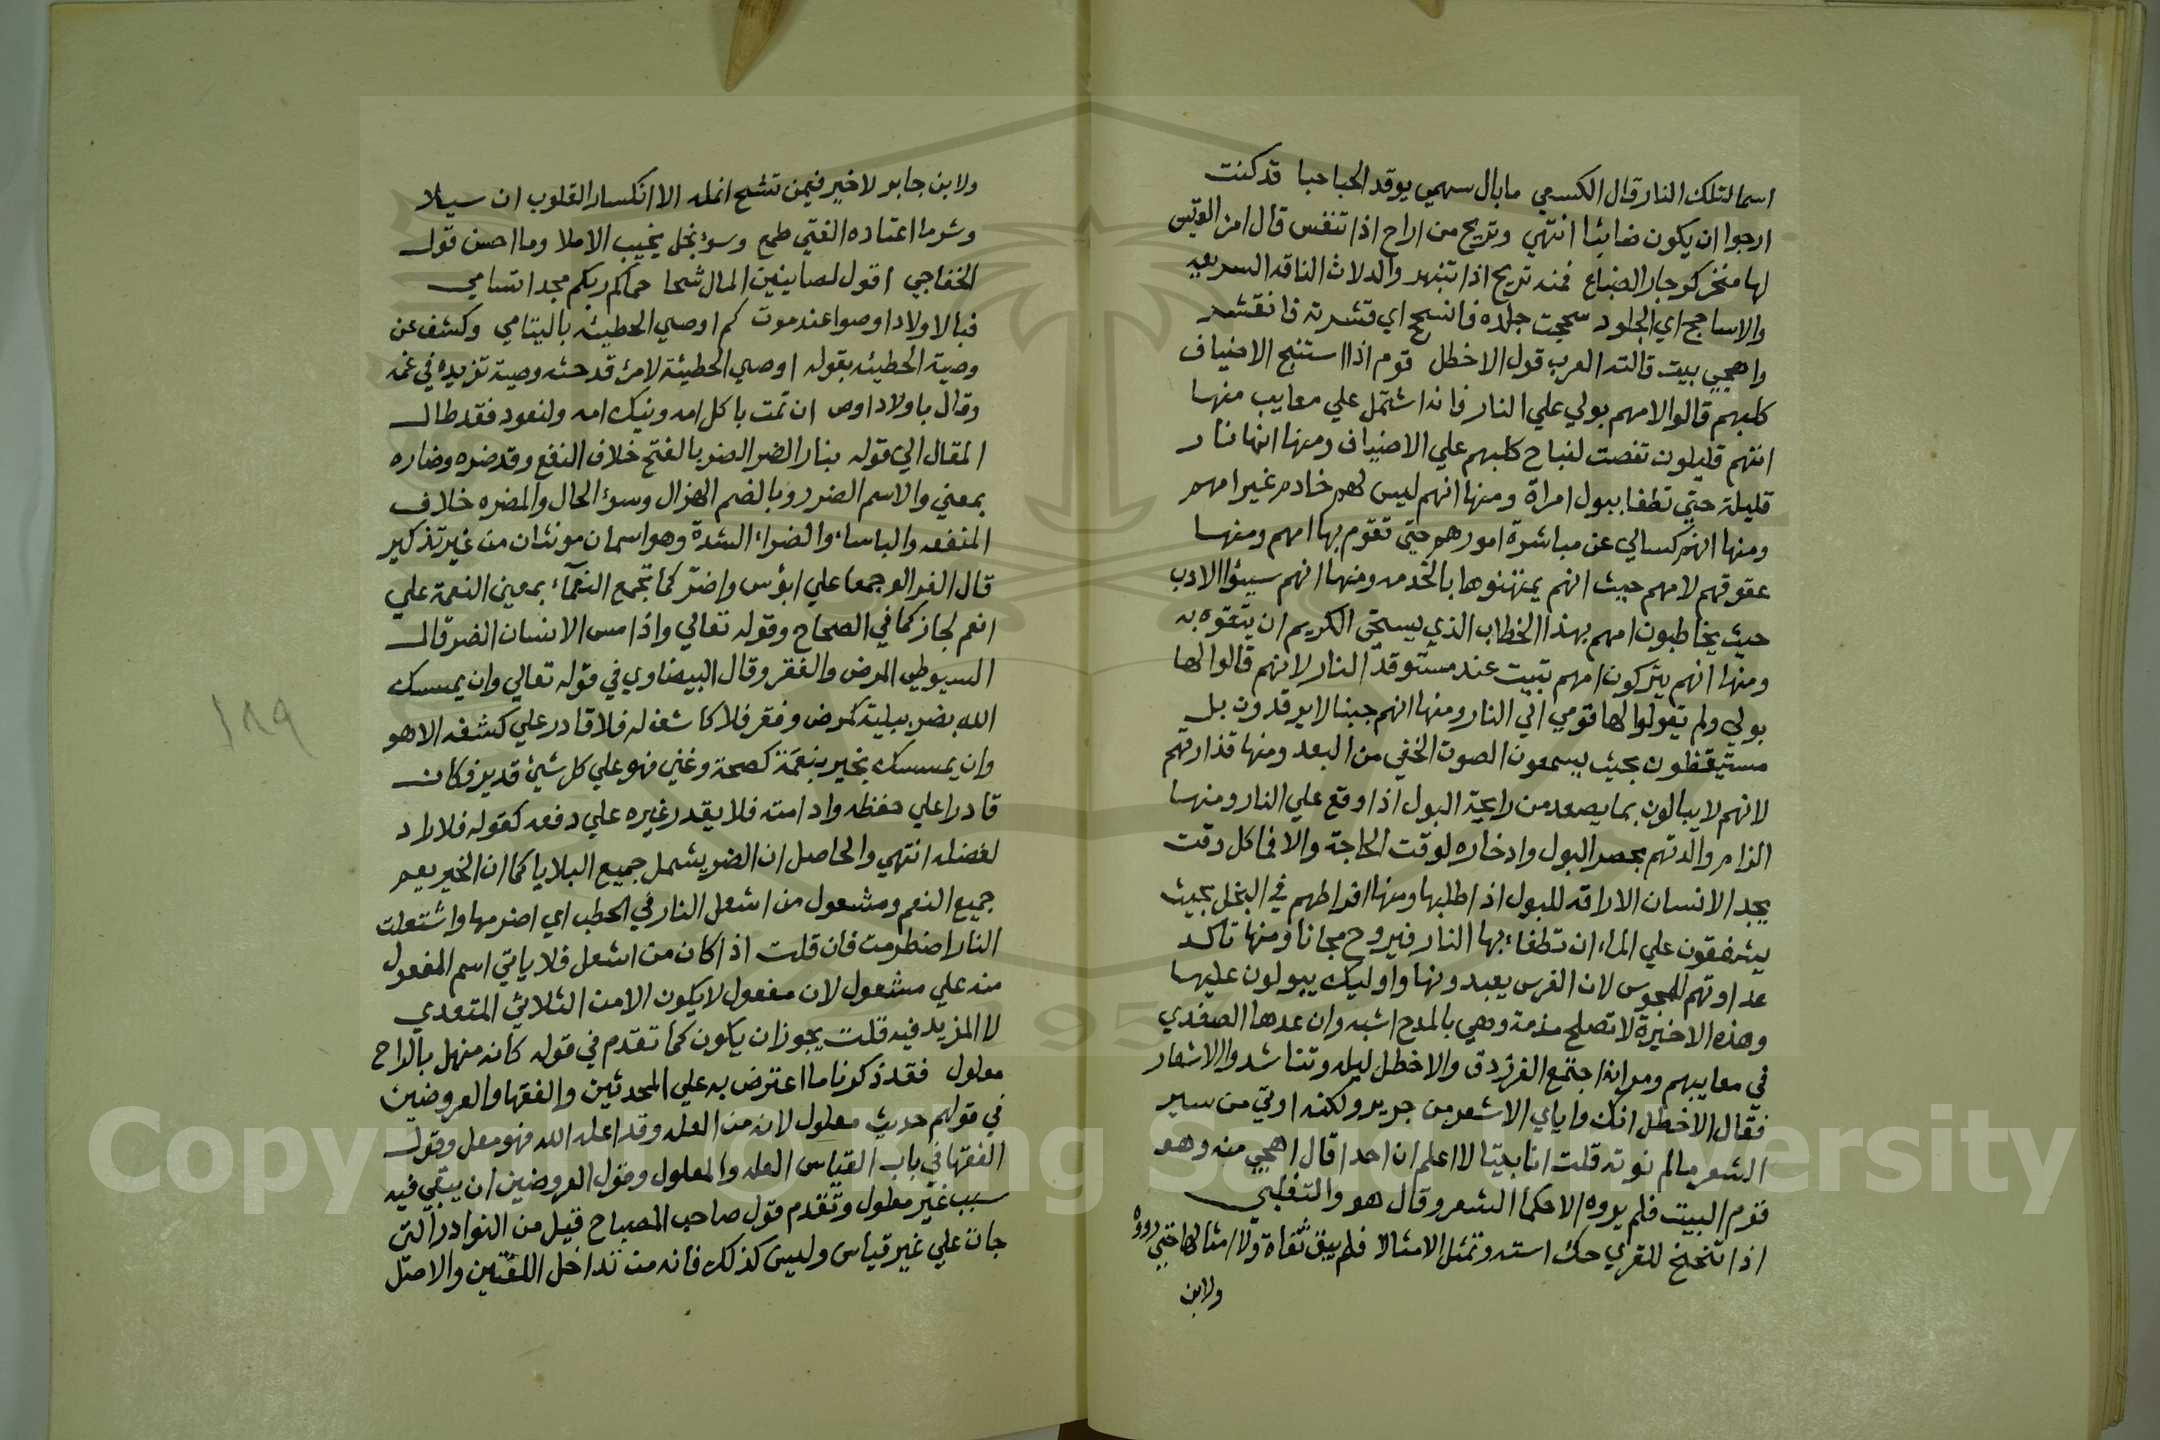 اسما لتلك النار قال الكسعي ما بال سهمي يوقد الحباحبا قد كنت
ارجوا ان يكون صائبا انتهي وتريح من اراح اذا تنفس قال امر القيس
لها منخر كوجار الضباع فمنه تريح اذا تنبهر والدلاث الناقه السريعه
والاساحج اي الجلود سحجت جلده فانسحج اي قشرته فانقشر
واهجي بيت قالته العرب قول الاخطل قوم اذا استنبح الاضياف
كلبهم قالوا لامهم بولي علي النار فانه اشتمل علي معايب منها
انهم قليلون تنصت لنباح كلبهم علي الاضياف ومنها انها نار
قليلة حتي تطفا ببول امراة ومنها انهم ليس لهم خادم غير امهم
ومنها انهم كسالي عن مباشرة امورهم حتي تقوم بها امهم ومنها
عقوقهم لامهم حيث انهم يمتهنوها بالخدمه ومنها انهم سيئوا الادب
حيث يخاطبون امهم بهذا الخطاب الذي يستحي الكريم ان يتفوه به
ومنها انهم يتركون امهم تبيت عند مستوقد النار لانهم قالوا لها
بولي ولم يقولوا لها قومي الي النار ومنها انهم جبنا لا يرقدون بل
مستيقظون بحيث يسمعون الصوت الخفي من البعد ومنها قذارتهم
لانهم لا يبالون بما يصعد من رايحة البول اذا وقع علي النار ومنها
الزام والدتهم بحصر البول وادخاره لوقت الحاجة والا فما كل وقت
يجد الانسان الاراقه للبول اذا طلبها ومنها افراطهم في البخل بحيث
يشفقون علي الماء ان تطفاء بها النار فيروح مجانا ومنها تاكد
عداوتهم للمجوس لان الفرس يعبدونها واوليك يبولون عليها
وهذه الاخيرة لا تصلح مذمة وهي بالمدح اشبه وان عدها الصفدي
في معايبهم ومر انه اجتمع الفرزدق والاخطل ليله وتناشدوا الاشعار
فقال الاخطل انك واياي الاشعر من جرير ولكنه اوتي من سير
الشعر ما لم نوته قلت انا بيتا لا اعلم ان احدا قال اهجي منه وهو
قوم البيت فلم يروه الا حكما الشعر وقال هو والتغلبي
اذا تنحنح للقري حك استه وتمثل الامثالا فلم يبق ثقاة ولا امثالها حتي رووه
ولابن
ولابن جابر لا خير فيمن تشح انمله الا انكسار القلوب ان سيلا
وشر ما اعتاده الفتي طمع وسوء بخل يخيب الاملا وما احسن قول
الخفاجي اقول لصاينين المال شحا حماكم ربكم مجدا تسامي
فبالاولاد اوصوا عند موت كم اوصي الحطيئه باليتامي وكشف عن
وصية الحطيئه بقوله اوصي الحطيئة لامرئ قد حثه وصية تزيده في غمه
وقال باولاد اوص ان تمت باكل امه ونيك امه ولنعود فقد طال
المقال الي قوله بنار الضر الضر بالفتح خلاف النفع وقد ضره وضاره
بمعني والاسم الضرر وبالضم الهزال وسوء الحال والمضره خلاف
المنفعه والباساء والضراء الشدة وهو اسمان مونثان من غير تذكير
قال الفرا لو جمعا علي ابؤس واضر كما تجمع النعماء بمعني النعمة علي
انعم لجاز كما في الصحاح وقوله تعالي واذا مس الانسان الضر قال
السيوطي المرض والفقر وقال البيضاوي في قوله تعالي وان يمسسك
الله بضر ببلية كمرض وفقر فلا كاشف له فلا قادر علي كشفه الا هو
وان يمسسك بخير بنعمة كصحة وغني فهو علي كل شئ قدير فكان
قادرا علي حفظه وادامته فلا يقدر غيره علي دفعه كقوله فلا راد
لفضله انتهي والحاصل ان الضر يشمل جميع البلايا كما ان الخير يعم
جميع النعم ومشعول من اشعل النار في الحطب اي اضرمها واشتعلت
النار اضطرمت فان قلت اذا كان من اشعل فلا ياتي اسم المفعول
منه علي مشعول لان مفعول لا يكون الا من الثلاثي المتعدي
لا المزيد فيه قلت يجوز ان يكون كما تقدم في قوله كانه منهل بالراح
معلول فقد ذكرنا ما اعترض به علي المحدثين والفقها والعروضين
في قولهم حديث معلول لانه من العله وقد اعله الله فهو معل وقول
الفقها في باب القياس العله والمعلول وقول العروضين ان يبقي فيه
سبب غير معلول وتقدم قول صاحب المصباح قيل من النوادر التي
جات علي غير قياس وليس كذلك فانه من تداخل اللغتين والاصل
١٨٩
Copyright © King Saud University
1957